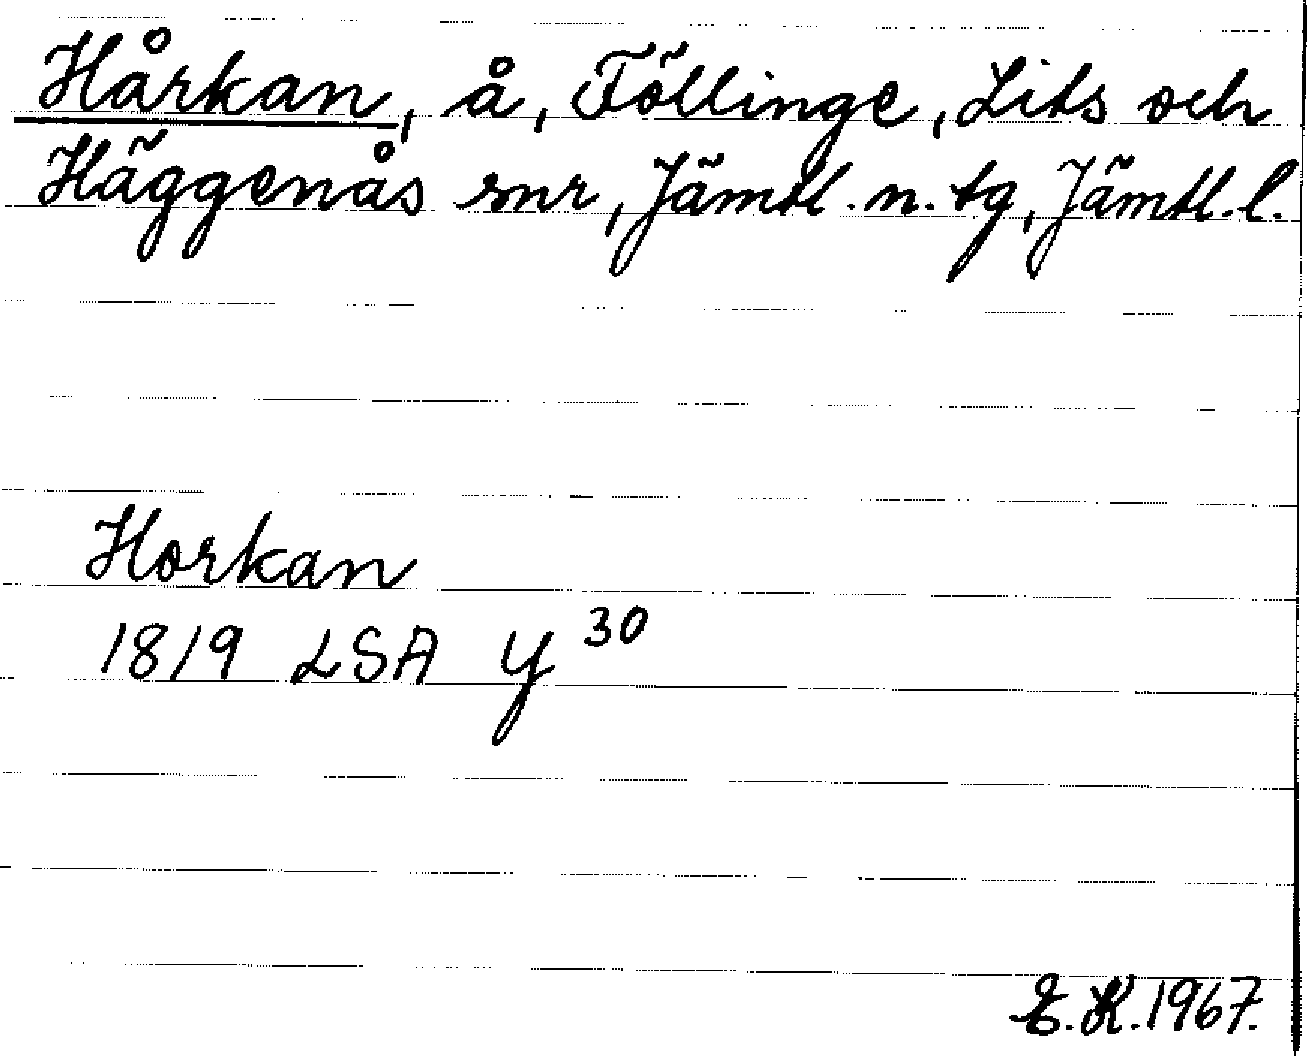 Hårkan, å, Föllinge, Lits och
Häggenås snr, Jämtl. n. tg, Jämtl. l.
Horkan
1819 LSA Y 30
E. K. 1967.